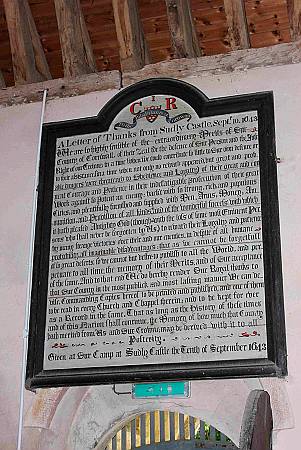 C R
A Letter of Thanks from Sudly Castle, Sept. 10. 1643
We are so highly sensible of the extraordinary Merits of Our
County of Cornwall, of their Zeal for the defence of Our Person and the Just
Rights of our Crown in a time when we could contribute so little to Our own defence or
to their assistance in a time when not only no reward appeared, but great and prob
able dangers were threatened to Obedience and Loyalty of their great and
Courage and Patience in their indefatigable prosecution of their great
Work against so potent an enemy backed with so strong, rich and populous
Cities, and plentifully furnished and supplied with Men, Arms, Money, Am
munition, and Provision of all kinds and of the wonderful success with which
it hath pleased Almighty God though with the loss of some most Eminent Per
sons who shall never be forgotten by Us to reward their Loyalty and patience
by many strange Victories over their and our enemies in despite of all humane
probability, all imaginable disadvantages that as we cannot be forgetful
of so great deserts, so we cannot but desire to publish to all the World, and per
petuate to all time the memory of their Merits, and of Our acceptance
of the same. And to that end We do hereby render Our Royal thanks to
that Our County in the most publick, and most lasting manner We can de
vise, Commanding Copies hereof to be printed and published, and one of them
to be read in every Church and Chappel therein, and to be kept for ever
as a Record in the same, That as long as the History of these times
and of this Nation shall continue, the Memory of how much that County
hath merited from Us and Our Crown, may be derived with it to all
Posterity.
Given at Our Camp at Sudly Castle the Tenth of September 1643